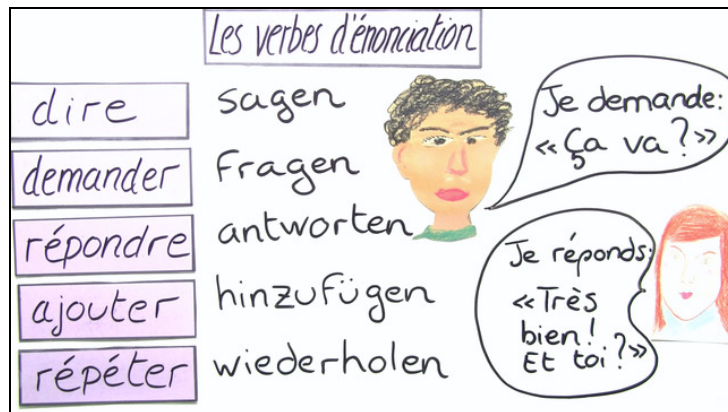 Les verbes d'énonciation
dire
sagen
demander
fragen
répondre
antworten
ajouter
hinzufügen
répéter
wiederholen
Je demande:
«Ça va?»
Je réponds:
«Très
bien!
Et toi?»